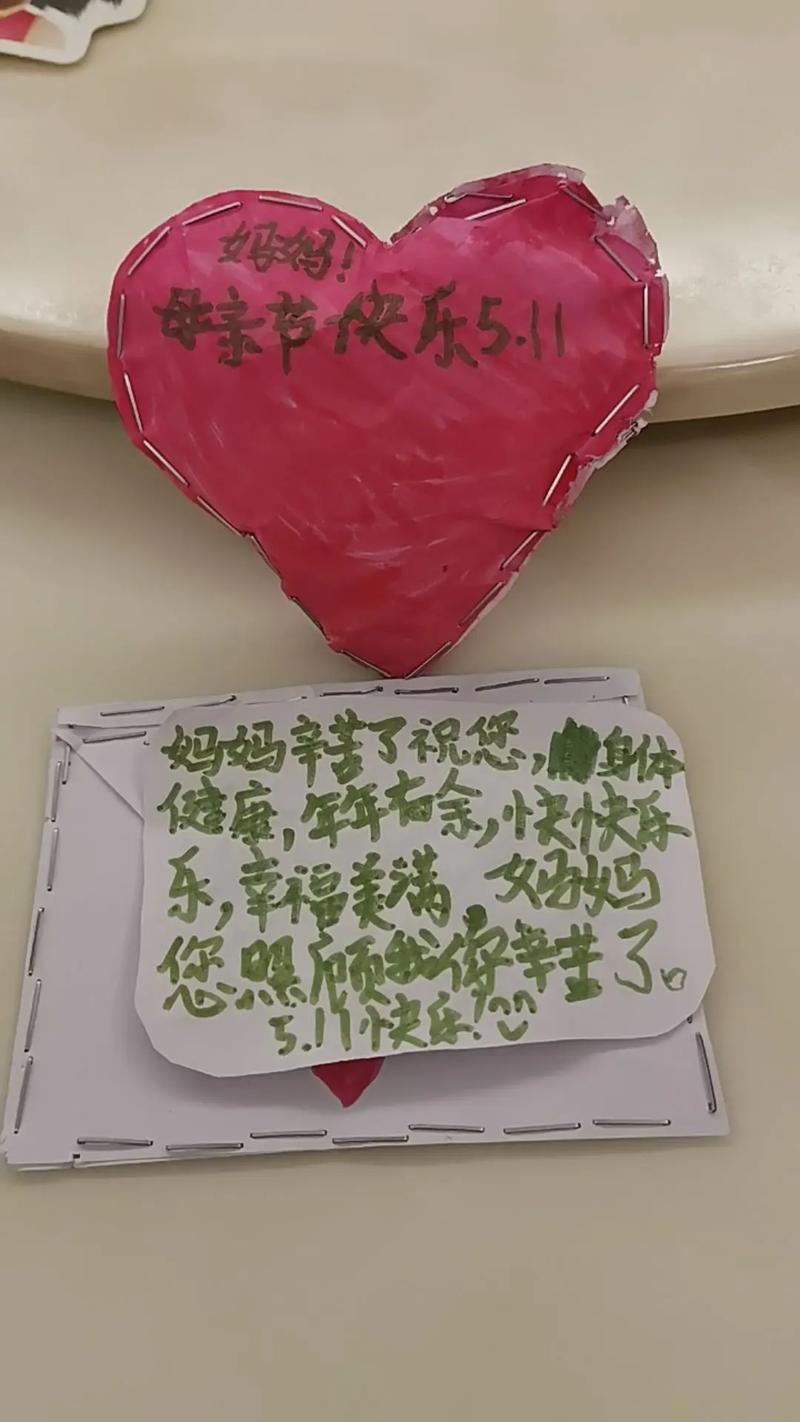 妈妈!
母亲节快乐5.11
妈妈辛苦了祝您,身体
健康,年年有余,快快乐
乐,幸福美满,妈妈
您照顾我你辛苦了。
5.11快乐!